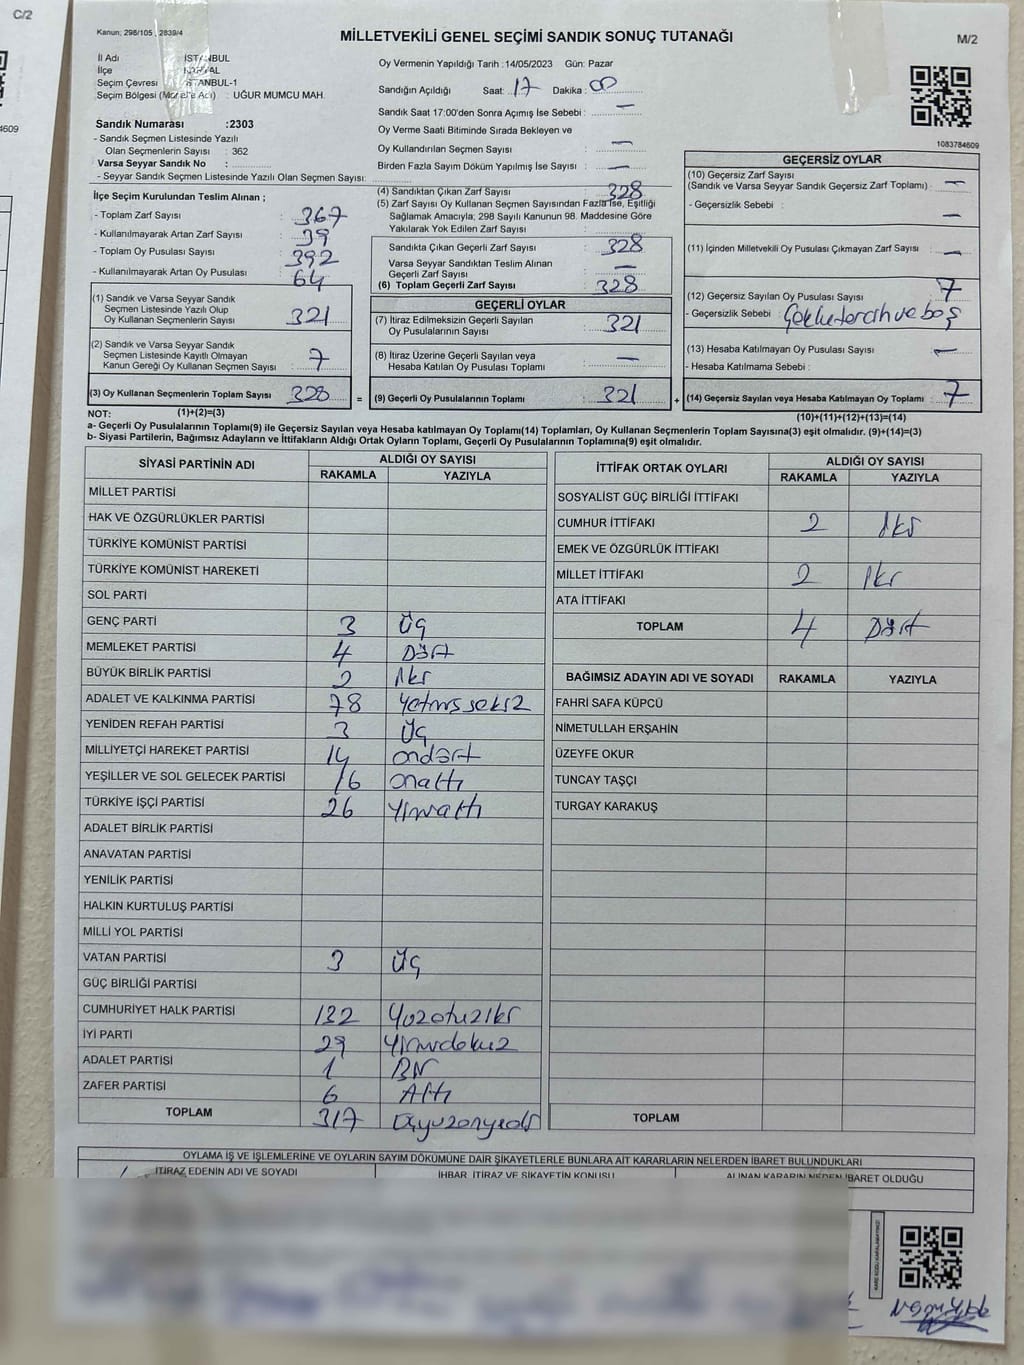 C/2
4609
Kanun; 298/105 , 2839/4
MİLLETVEKİLİ GENEL SEÇİMİ SANDIK SONUÇ TUTANAĞI
M/2
İl Adı : İSTANBUL
İlçe
Seçim Çevresi : İSTANBUL-1
Seçim Bölgesi : UĞUR MUMCU MAH.
Sandık Numarası :2303
- Sandık Seçmen Listesinde Yazılı
Olan Seçmenlerin Sayısı : 362
Varsa Seyyar Sandık No :
- Seyyar Sandık Seçmen Listesinde Yazılı Olan Seçmen Sayısı:
Oy Vermenin Yapıldığı Tarih :14/05/2023 Gün: Pazar
Sandığın Açıldığı Saat: 17 Dakika: 00
Sandık Saat 17:00'den Sonra Açımış İse Sebebi : —
Oy Verme Saati Bitiminde Sırada Bekleyen ve
Oy Kullandırılan Seçmen Sayısı : —
Birden Fazla Sayım Döküm Yapılmış İse Sayısı : —
1083784609
İlçe Seçim Kurulundan Teslim Alınan ;
- Toplam Zarf Sayısı : 367
- Kullanılmayarak Artan Zarf Sayısı : 39
- Toplam Oy Pusulası Sayısı : 392
- Kullanılmayarak Artan Oy Pusulası : 64
(1) Sandık ve Varsa Seyyar Sandık
Seçmen Listesinde Yazılı Olup
Oy Kullanan Seçmenlerin Sayısı : 321
(2) Sandık ve Varsa Seyyar Sandık
Seçmen Listesinde Kayıtlı Olmayan
Kanun Gereği Oy Kullanan Seçmen Sayısı : 7
(3) Oy Kullanan Seçmenlerin Toplam Sayısı : 328
(4) Sandıktan Çıkan Zarf Sayısı : 328
(5) Zarf Sayısı Oy Kullanan Seçmen Sayısından Fazla İse, Eşitliği
Sağlamak Amacıyla; 298 Sayılı Kanunun 98. Maddesine Göre
Yakılarak Yok Edilen Zarf Sayısı :
Sandıkta Çıkan Geçerli Zarf Sayısı : 328
Varsa Seyyar Sandıktan Teslim Alınan
Geçerli Zarf Sayısı : —
(6) Toplam Geçerli Zarf Sayısı : 328
GEÇERLİ OYLAR
(7) İtiraz Edilmeksizin Geçerli Sayılan
Oy Pusulalarının Sayısı : 321
(8) İtiraz Üzerine Geçerli Sayılan veya
Hesaba Katılan Oy Pusulası Toplamı : —
= (9) Geçerli Oy Pusulalarının Toplamı : 321
GEÇERSİZ OYLAR
(10) Geçersiz Zarf Sayısı
(Sandık ve Varsa Seyyar Sandık Geçersiz Zarf Toplamı) : —
- Geçersizlik Sebebi : —
(11) İçinden Milletvekili Oy Pusulası Çıkmayan Zarf Sayısı : —
(12) Geçersiz Sayılan Oy Pusulası Sayısı : 7
- Geçersizlik Sebebi : Çoklu tercih ve boş
(13) Hesaba Katılmayan Oy Pusulası Sayısı : —
- Hesaba Katılmama Sebebi :
+ (14) Geçersiz Sayılan veya Hesaba Katılmayan Oy Toplamı : 7
NOT: (1)+(2)=(3)
(10)+(11)+(12)+(13)=(14)
a- Geçerli Oy Pusulalarının Toplamı(9) ile Geçersiz Sayılan veya Hesaba katılmayan Oy Toplamı(14) Toplamları, Oy Kullanan Seçmenlerin Toplam Sayısına(3) eşit olmalıdır. (9)+(14)=(3)
b- Siyasi Partilerin, Bağımsız Adayların ve İttifakların Aldığı Ortak Oyların Toplamı, Geçerli Oy Pusulalarının Toplamına(9) eşit olmalıdır.
SİYASİ PARTİNİN ADI ALDIĞI OY SAYISI
RAKAMLA YAZIYLA
MİLLET PARTİSİ
HAK VE ÖZGÜRLÜKLER PARTİSİ
TÜRKİYE KOMÜNİST PARTİSİ
TÜRKİYE KOMÜNİST HAREKETİ
SOL PARTİ
GENÇ PARTİ 3 Üç
MEMLEKET PARTİSİ 4 Dört
BÜYÜK BİRLİK PARTİSİ 2 İki
ADALET VE KALKINMA PARTİSİ 78 Yetmişsekiz
YENİDEN REFAH PARTİSİ 3 Üç
MİLLİYETÇİ HAREKET PARTİSİ 14 ondört
YEŞİLLER VE SOL GELECEK PARTİSİ 16 onaltı
TÜRKİYE İŞÇİ PARTİSİ 26 Yirmialtı
ADALET BİRLİK PARTİSİ
ANAVATAN PARTİSİ
YENİLİK PARTİSİ
HALKIN KURTULUŞ PARTİSİ
MİLLİ YOL PARTİSİ
VATAN PARTİSİ 3 Üç
GÜÇ BİRLİĞİ PARTİSİ
CUMHURİYET HALK PARTİSİ 132 Yüzotuziki
İYİ PARTİ 29 Yirmidokuz
ADALET PARTİSİ 1 Bir
ZAFER PARTİSİ 6 Altı
TOPLAM 317 Üçyüzonyedi
İTTİFAK ORTAK OYLARI ALDIĞI OY SAYISI
RAKAMLA YAZIYLA
SOSYALİST GÜÇ BİRLİĞİ İTTİFAKI
CUMHUR İTTİFAKI 2 İki
EMEK VE ÖZGÜRLÜK İTTİFAKI
MİLLET İTTİFAKI 2 İki
ATA İTTİFAKI
TOPLAM 4 Dört
BAĞIMSIZ ADAYIN ADI VE SOYADI RAKAMLA YAZIYLA
FAHRİ SAFA KÜPCÜ
NİMETULLAH ERŞAHİN
ÜZEYFE OKUR
TUNCAY TAŞÇI
TURGAY KARAKUŞ
TOPLAM
OYLAMA İŞ VE İŞLEMLERİNE VE OYLARIN SAYIM DÖKÜMÜNE DAİR ŞİKAYETLERLE BUNLARA AİT KARARLARIN NELERDEN İBARET BULUNDUKLARI
İTİRAZ EDENİN ADI VE SOYADI İHBAR, İTİRAZ VE ŞİKAYETİN KONUSU ALINAN KARARIN NEDEN İBARET OLDUĞU